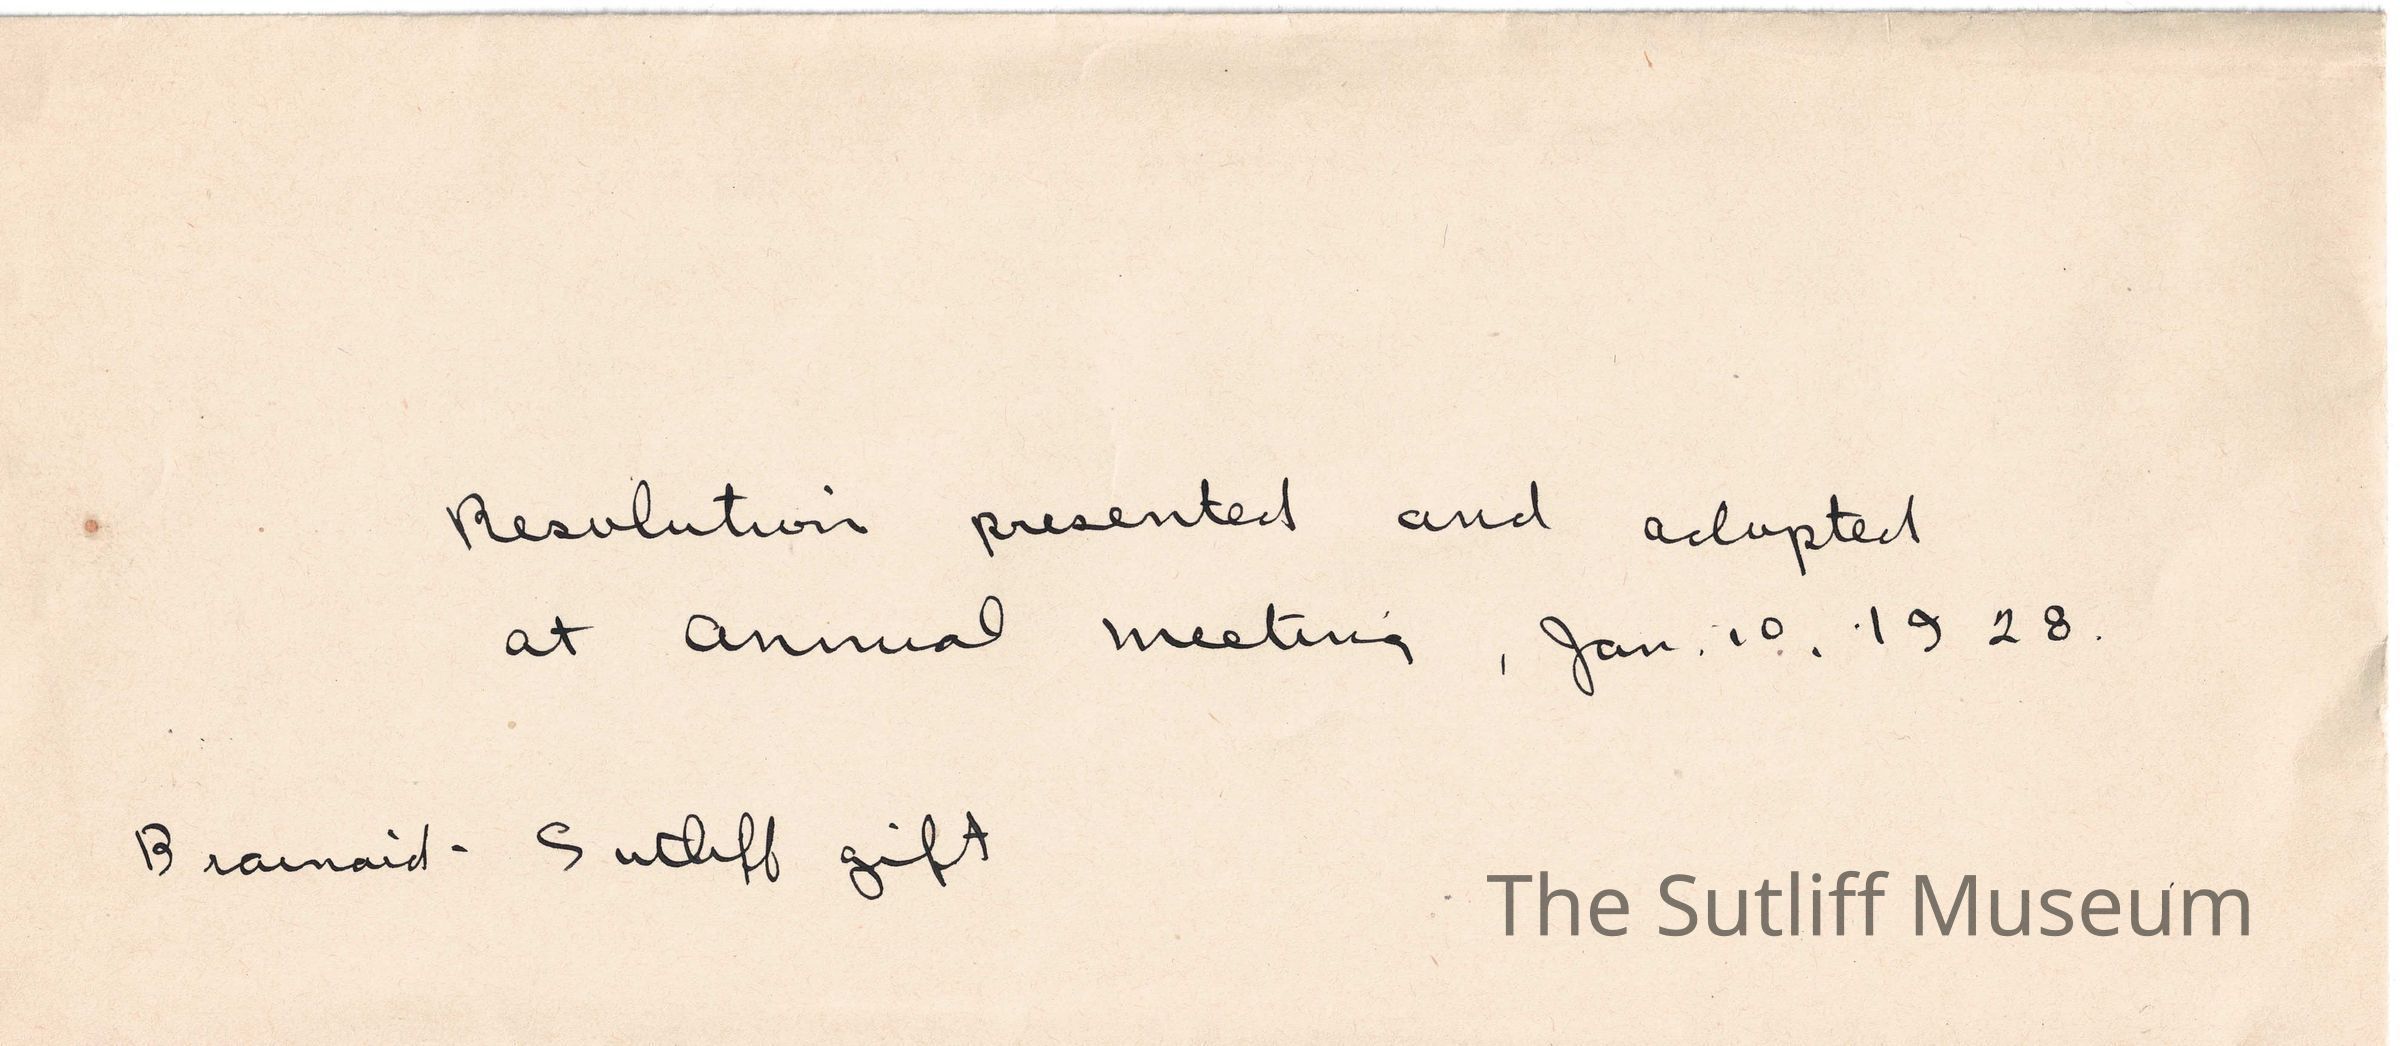 Resolution presented and adopted
at annual meeting, Jan. 10. 1928.
Brainaid - Sutliff gift
The Sutliff Museum